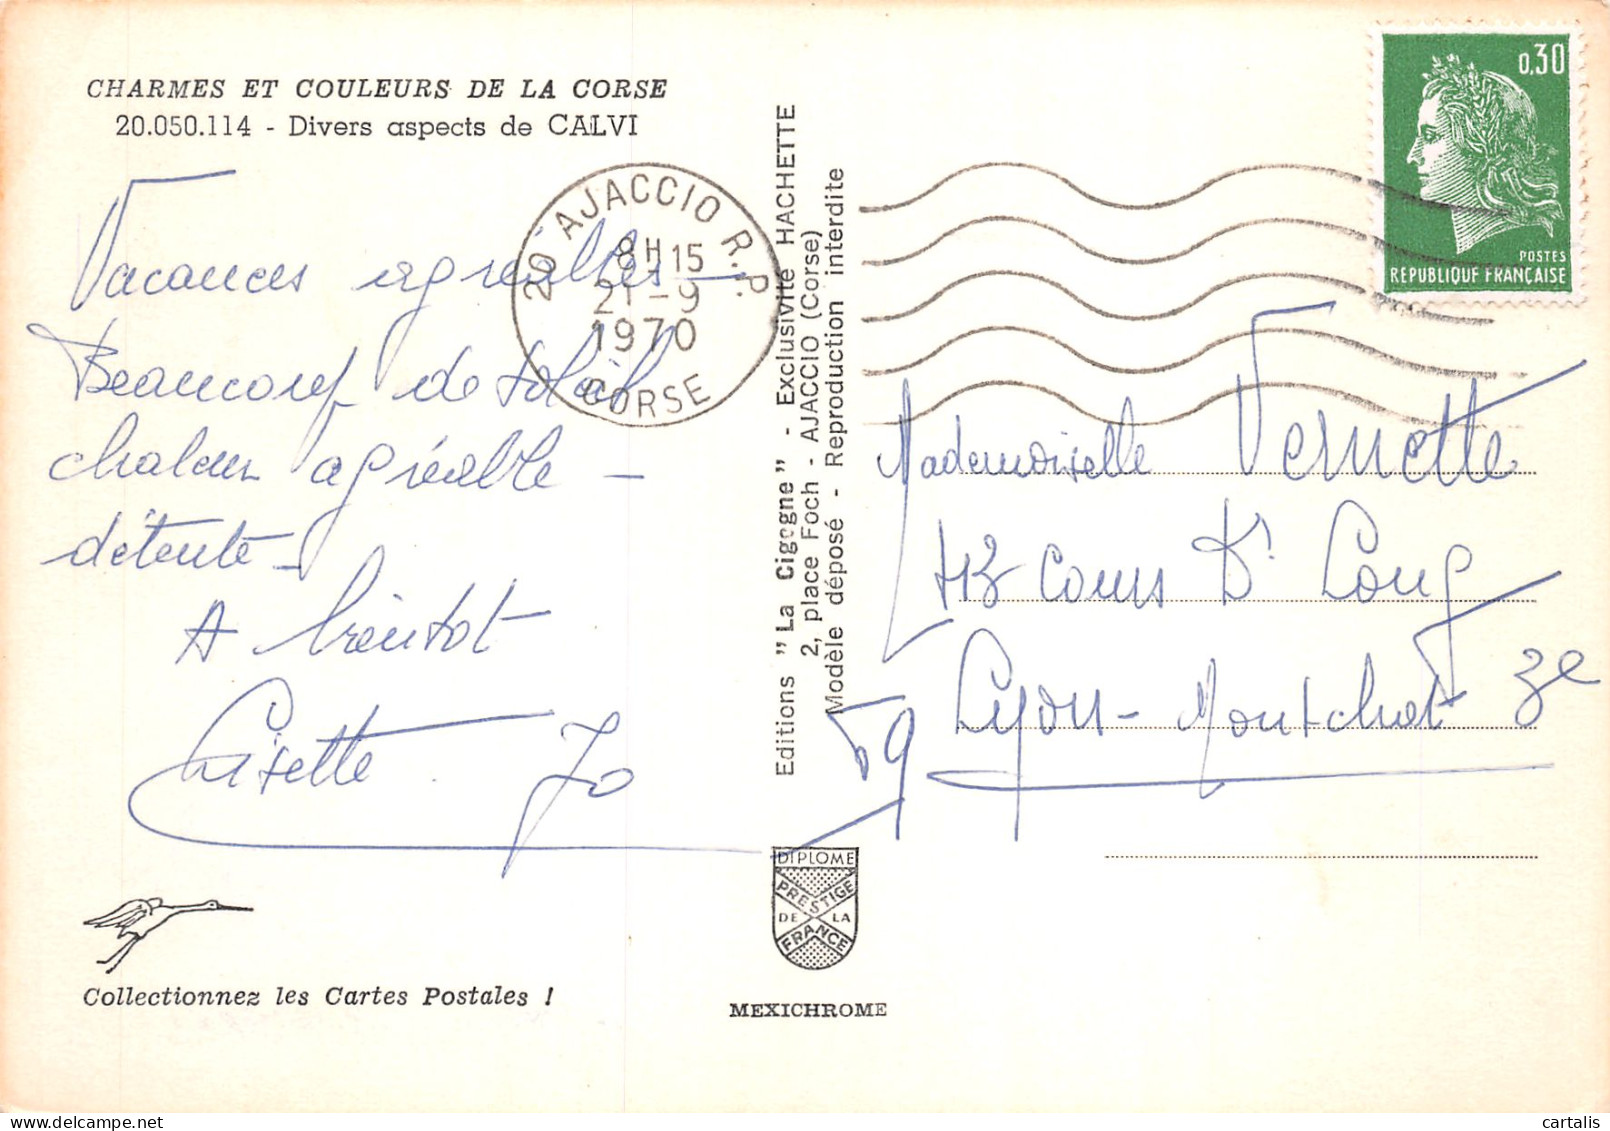 CHARMES ET COULEURS DE LA CORSE
20.050.114 - Divers aspects de CALVI
Vacances agréables -
Beaucoup de soleil
chaleur agréable -
détente -
A bientot
Lisette Jo
Collectionnez les Cartes Postales !
20 AJACCIO R.P.
8H15
21-9
1970
CORSE
Editions "La Cigogne" - Exclusivité HACHETTE
2, place Foch - AJACCIO (Corse)
Modèle déposé - Reproduction interdite
DIPLOME
PRESTIGE
DE LA
FRANCE
MEXICHROME
0,30
POSTES
REPUBLIQUE FRANÇAISE
Mademoiselle Vernette
Cours Dr Long
Lyon - Montchat 3e
69
cartalis